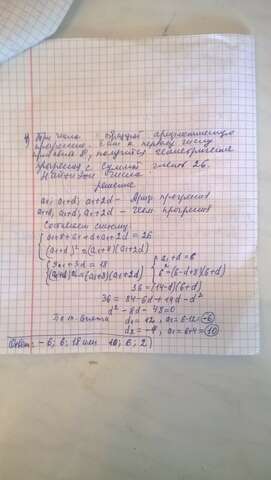 4) Три числа образуют арифметическую
прогрессию. Если к первому числу
прибавить 8, получится геометрическая
прогрессия с суммой членов 26.
Найти эти числа.
Решение
a₁; a₁+d; a₁+2d - Ариф. прогрессия
a₁+8; a₁+d; a₁+2d - Геом прогрессия
Составляем систему
{a₁+8+a₁+d+a₁+2d = 26
(a₁+d)² = (a₁+8)(a₁+2d)
{3a₁+3d = 18 {a₁+d = 6
(a₁+d)² = (a₁+8)(a₁+2d) 6² = (6-d+8)(6+d)
36 = (14-d)(6+d)
36 = 84-6d+14d-d²
d²-8d-48=0
По т. Виета d₁ = 12, a₁ = 6-12 = -6
d₂ = -4, a₁ = 6+4 = 10
Ответ: -6; 6; 18 или 10; 6; 2)